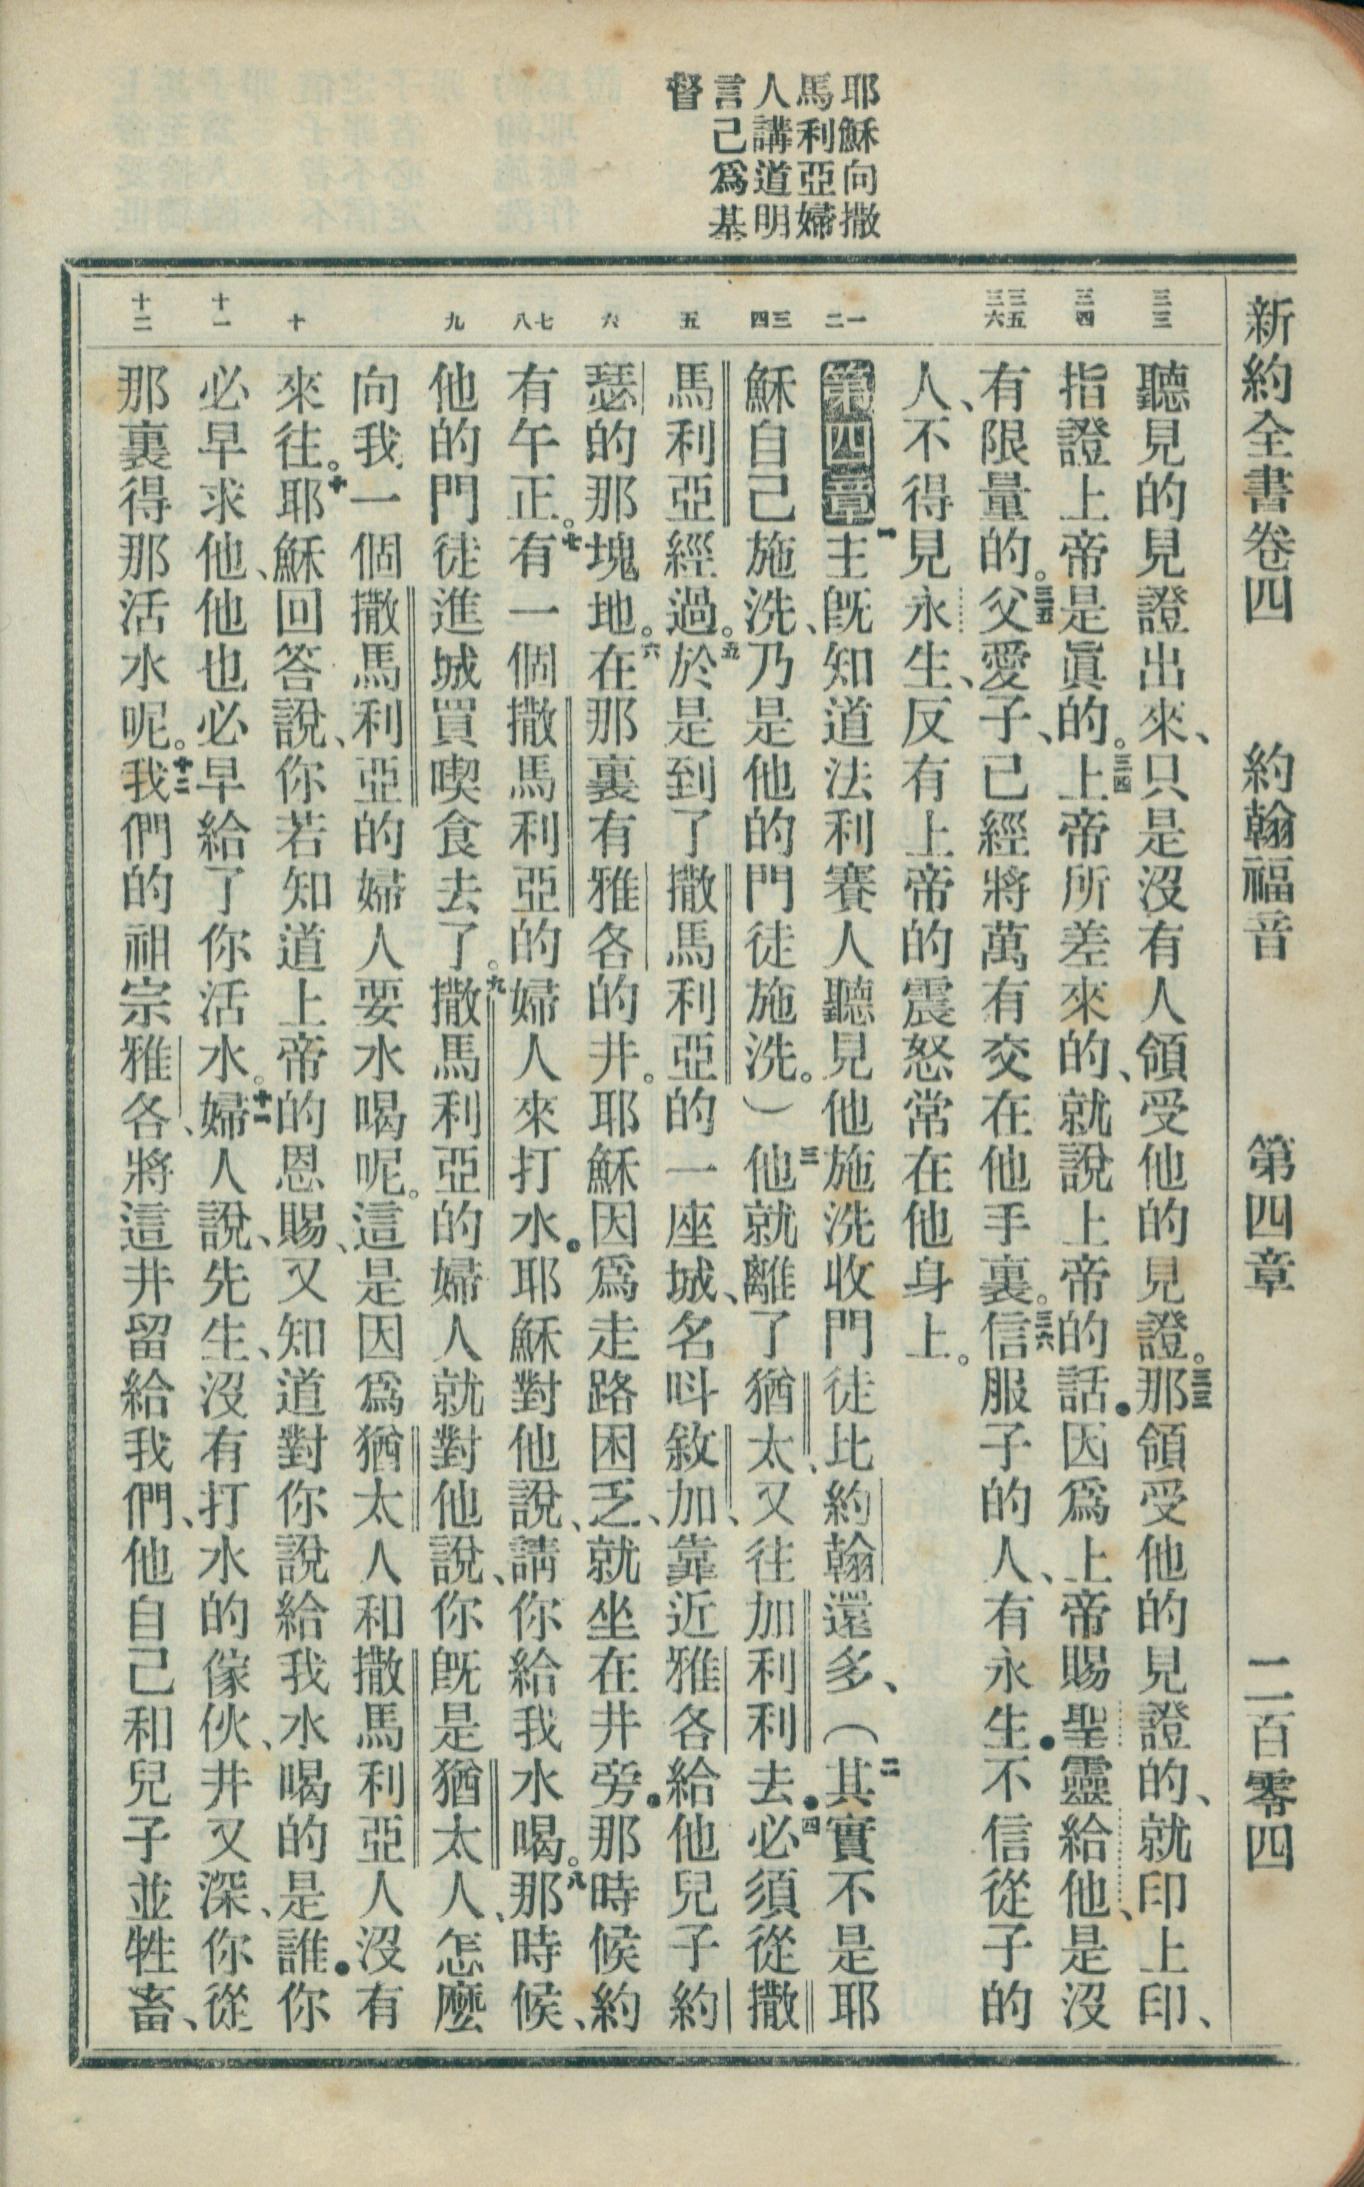 新約全書卷四 約翰福音 第四章 二百零四
耶穌向撒
馬利亞婦
人講道明
言己爲基
督
三三
三四
三五
三六
一
二
三
四
五
六
七
八
九
十
十一
十二
聽見的見證出來、只是沒有人領受他的見證。三三那領受他的見證的、就印上印、
指證上帝是眞的。三四上帝所差來的、就說上帝的話●因爲上帝賜聖靈給他、是沒
有限量的。三五父愛子、已經將萬有交在他手裏。三六信服子的人、有永生●不信從子的
人、不得見永生、反有上帝的震怒常在他身上。
第四章 一主旣知道法利賽人聽見他施洗收門徒比約翰還多、（二其實不是耶
穌自己施洗、乃是他的門徒施洗。）三他就離了猶太、又往加利利去●四必須從撒
馬利亞經過。五於是到了撒馬利亞的一座城、名呌敘加、靠近雅各給他兒子約
瑟的那塊地。六在那裏有雅各的井。耶穌因爲走路困乏、就坐在井旁●那時候約
有午正。七有一個撒馬利亞的婦人來打水●耶穌對他說、請你給我水喝。八那時候、
他的門徒進城買喫食去了。九撒馬利亞的婦人就對他說、你旣是猶太人、怎麼
向我一個撒馬利亞的婦人要水喝呢。這是因爲猶太人和撒馬利亞人沒有
來往。十耶穌回答說、你若知道上帝的恩賜、又知道對你說給我水喝的是誰●你
必早求他、他也必早給了你活水。十一婦人說、先生、沒有打水的傢伙、井又深、你從
那裏得那活水呢。十二我們的祖宗雅各、將這井留給我們、他自己和兒子並牲畜、